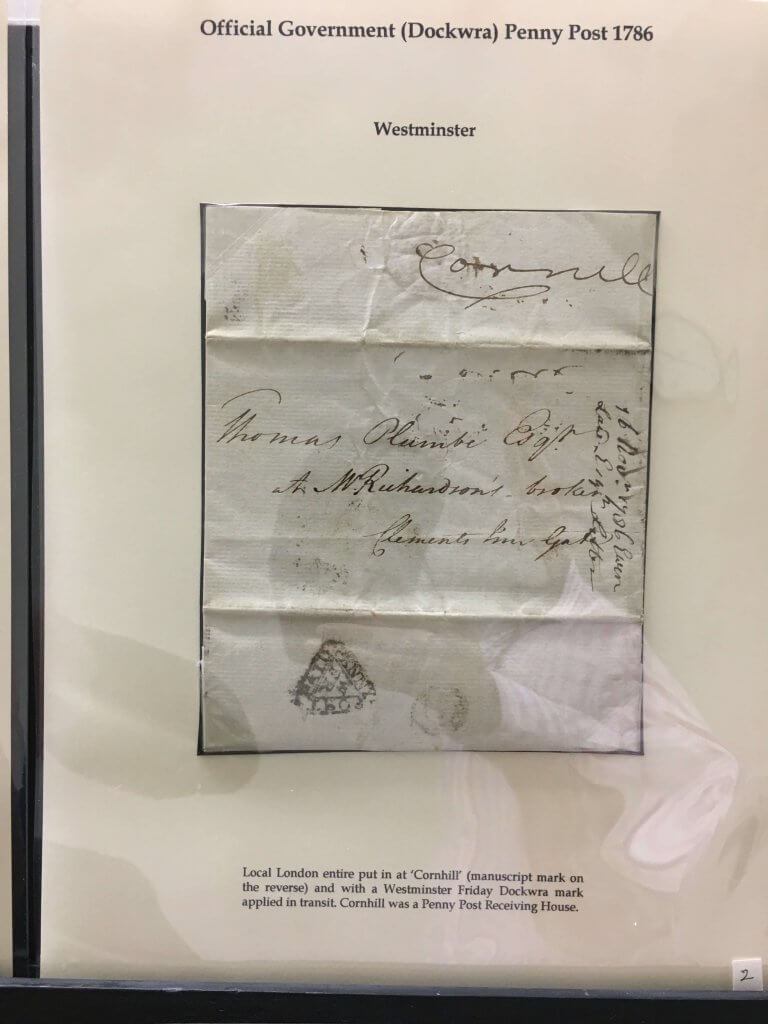 Official Government (Dockwra) Penny Post 1786
Westminster
Cornhill
Thomas Plumbe Esqr
at Mr Richardson's broker
Clements Inn Gate
16 Novr 1786 Even
PENNY
PAID
Local London entire put in at 'Cornhill' (manuscript mark on
the reverse) and with a Westminster Friday Dockwra mark
applied in transit. Cornhill was a Penny Post Receiving House.
2